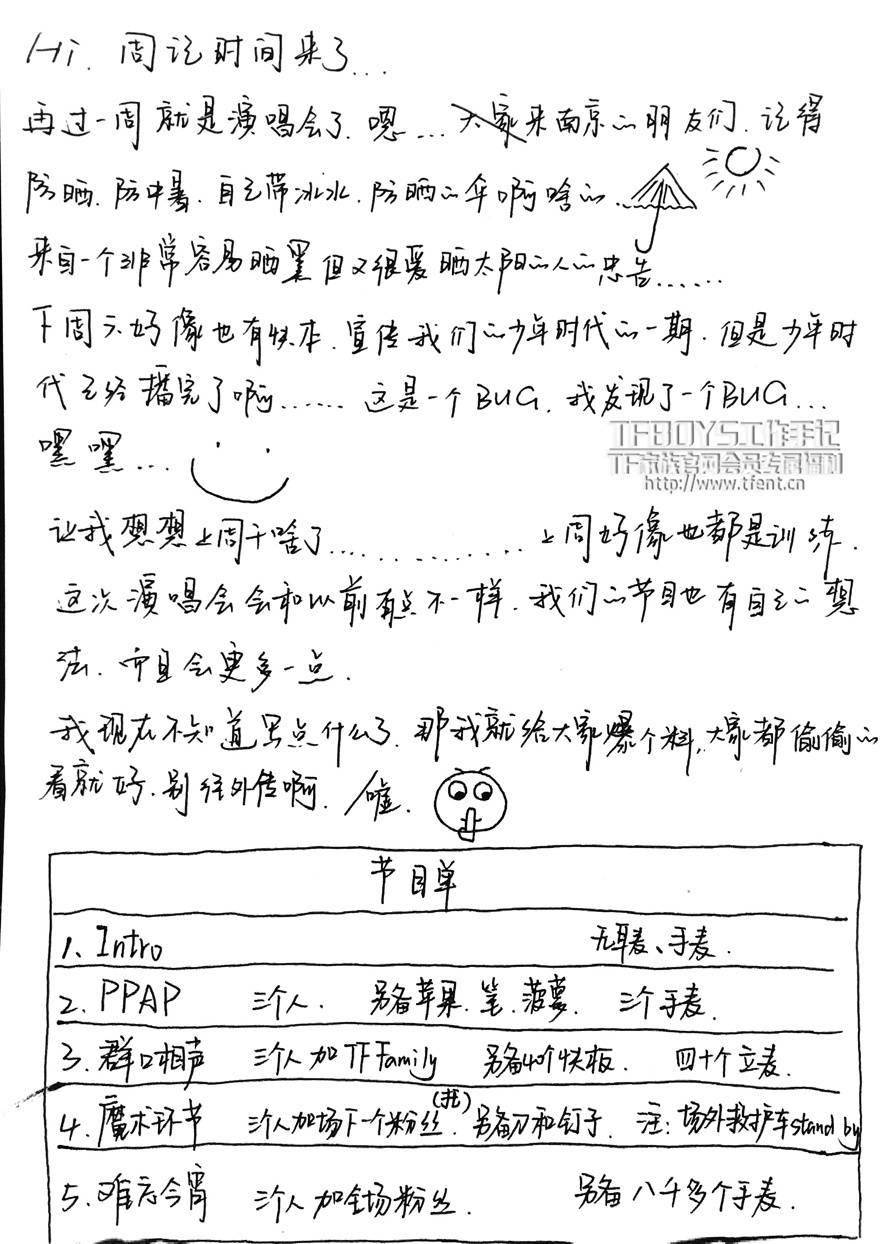 Hi. 周记时间来了...
再过一周就是演唱会了. 嗯... 大家来南京的朋友们. 记得
防晒. 防中暑. 自己带冰水. 防晒的伞啊啥的.
来自一个非常容易晒黑但又很爱晒太阳的人的忠告......
下周六好像也有快本. 宣传我们的少年时代的一期. 但是少年时
代已经播完了啊...... 这是一个BUG. 我发现了一个BUG...
嘿嘿...
TFBOYS工作手记
TF家族官网会员专属福利
http://www.tfent.cn
让我想想上周干啥了.............. 上周好像也都是训练.
这次演唱会会和以前有点不一样. 我们的节目也有自己的想
法. 而且会更多一点.
我现在不知道写点什么了. 那我就给大家爆个料. 大家都偷偷的
看就好. 别往外传啊. 嘘.
节目单
1. Intro 无耳麦、手麦.
2. PPAP 三个人. 另备苹果. 笔. 菠萝. 三个手麦.
3. 群口相声 三个人加TF Family 另备40个快板. 四十个立麦.
4. 魔术环节 三个人加场下一个粉丝(托). 另备刀和钉子. 注: 场外救护车stand by
5. 难忘今宵 三个人加全场粉丝. 另备八千多个手麦.